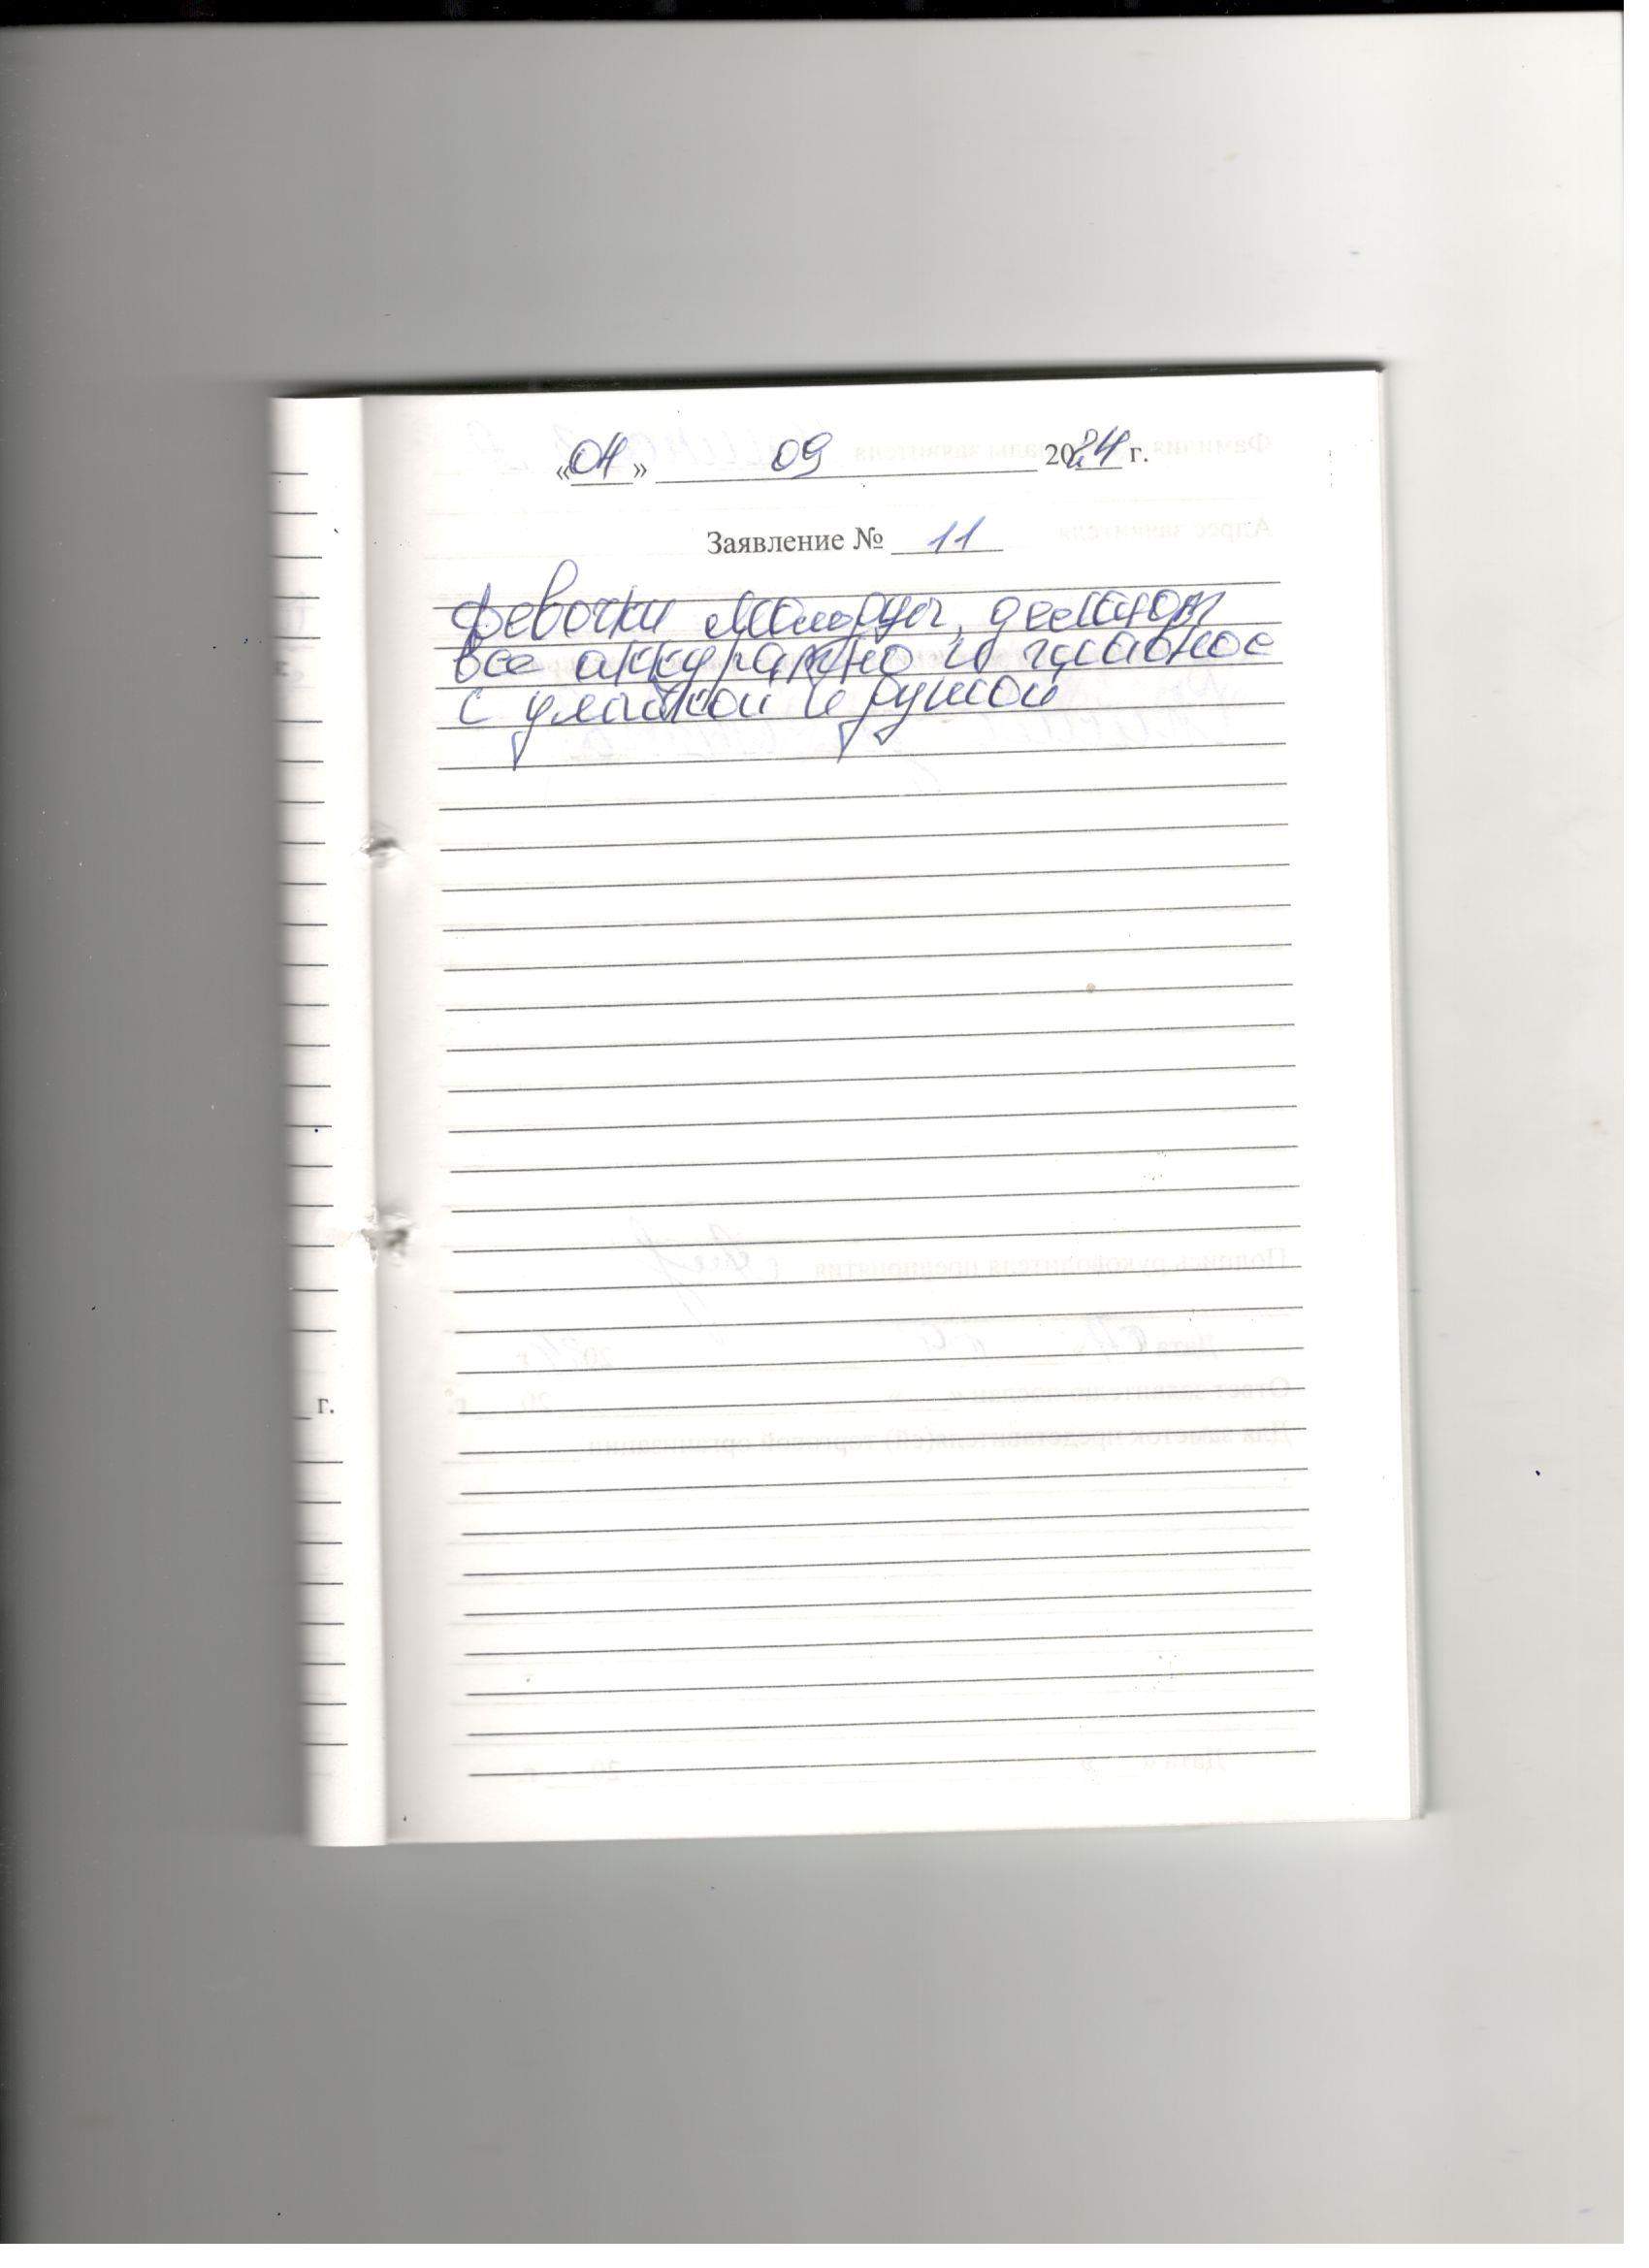 «04» 09 2024 г.
Заявление № 11
Девочки молодцы, делают
все аккуратно и главное
с улыбкой и душой
г.